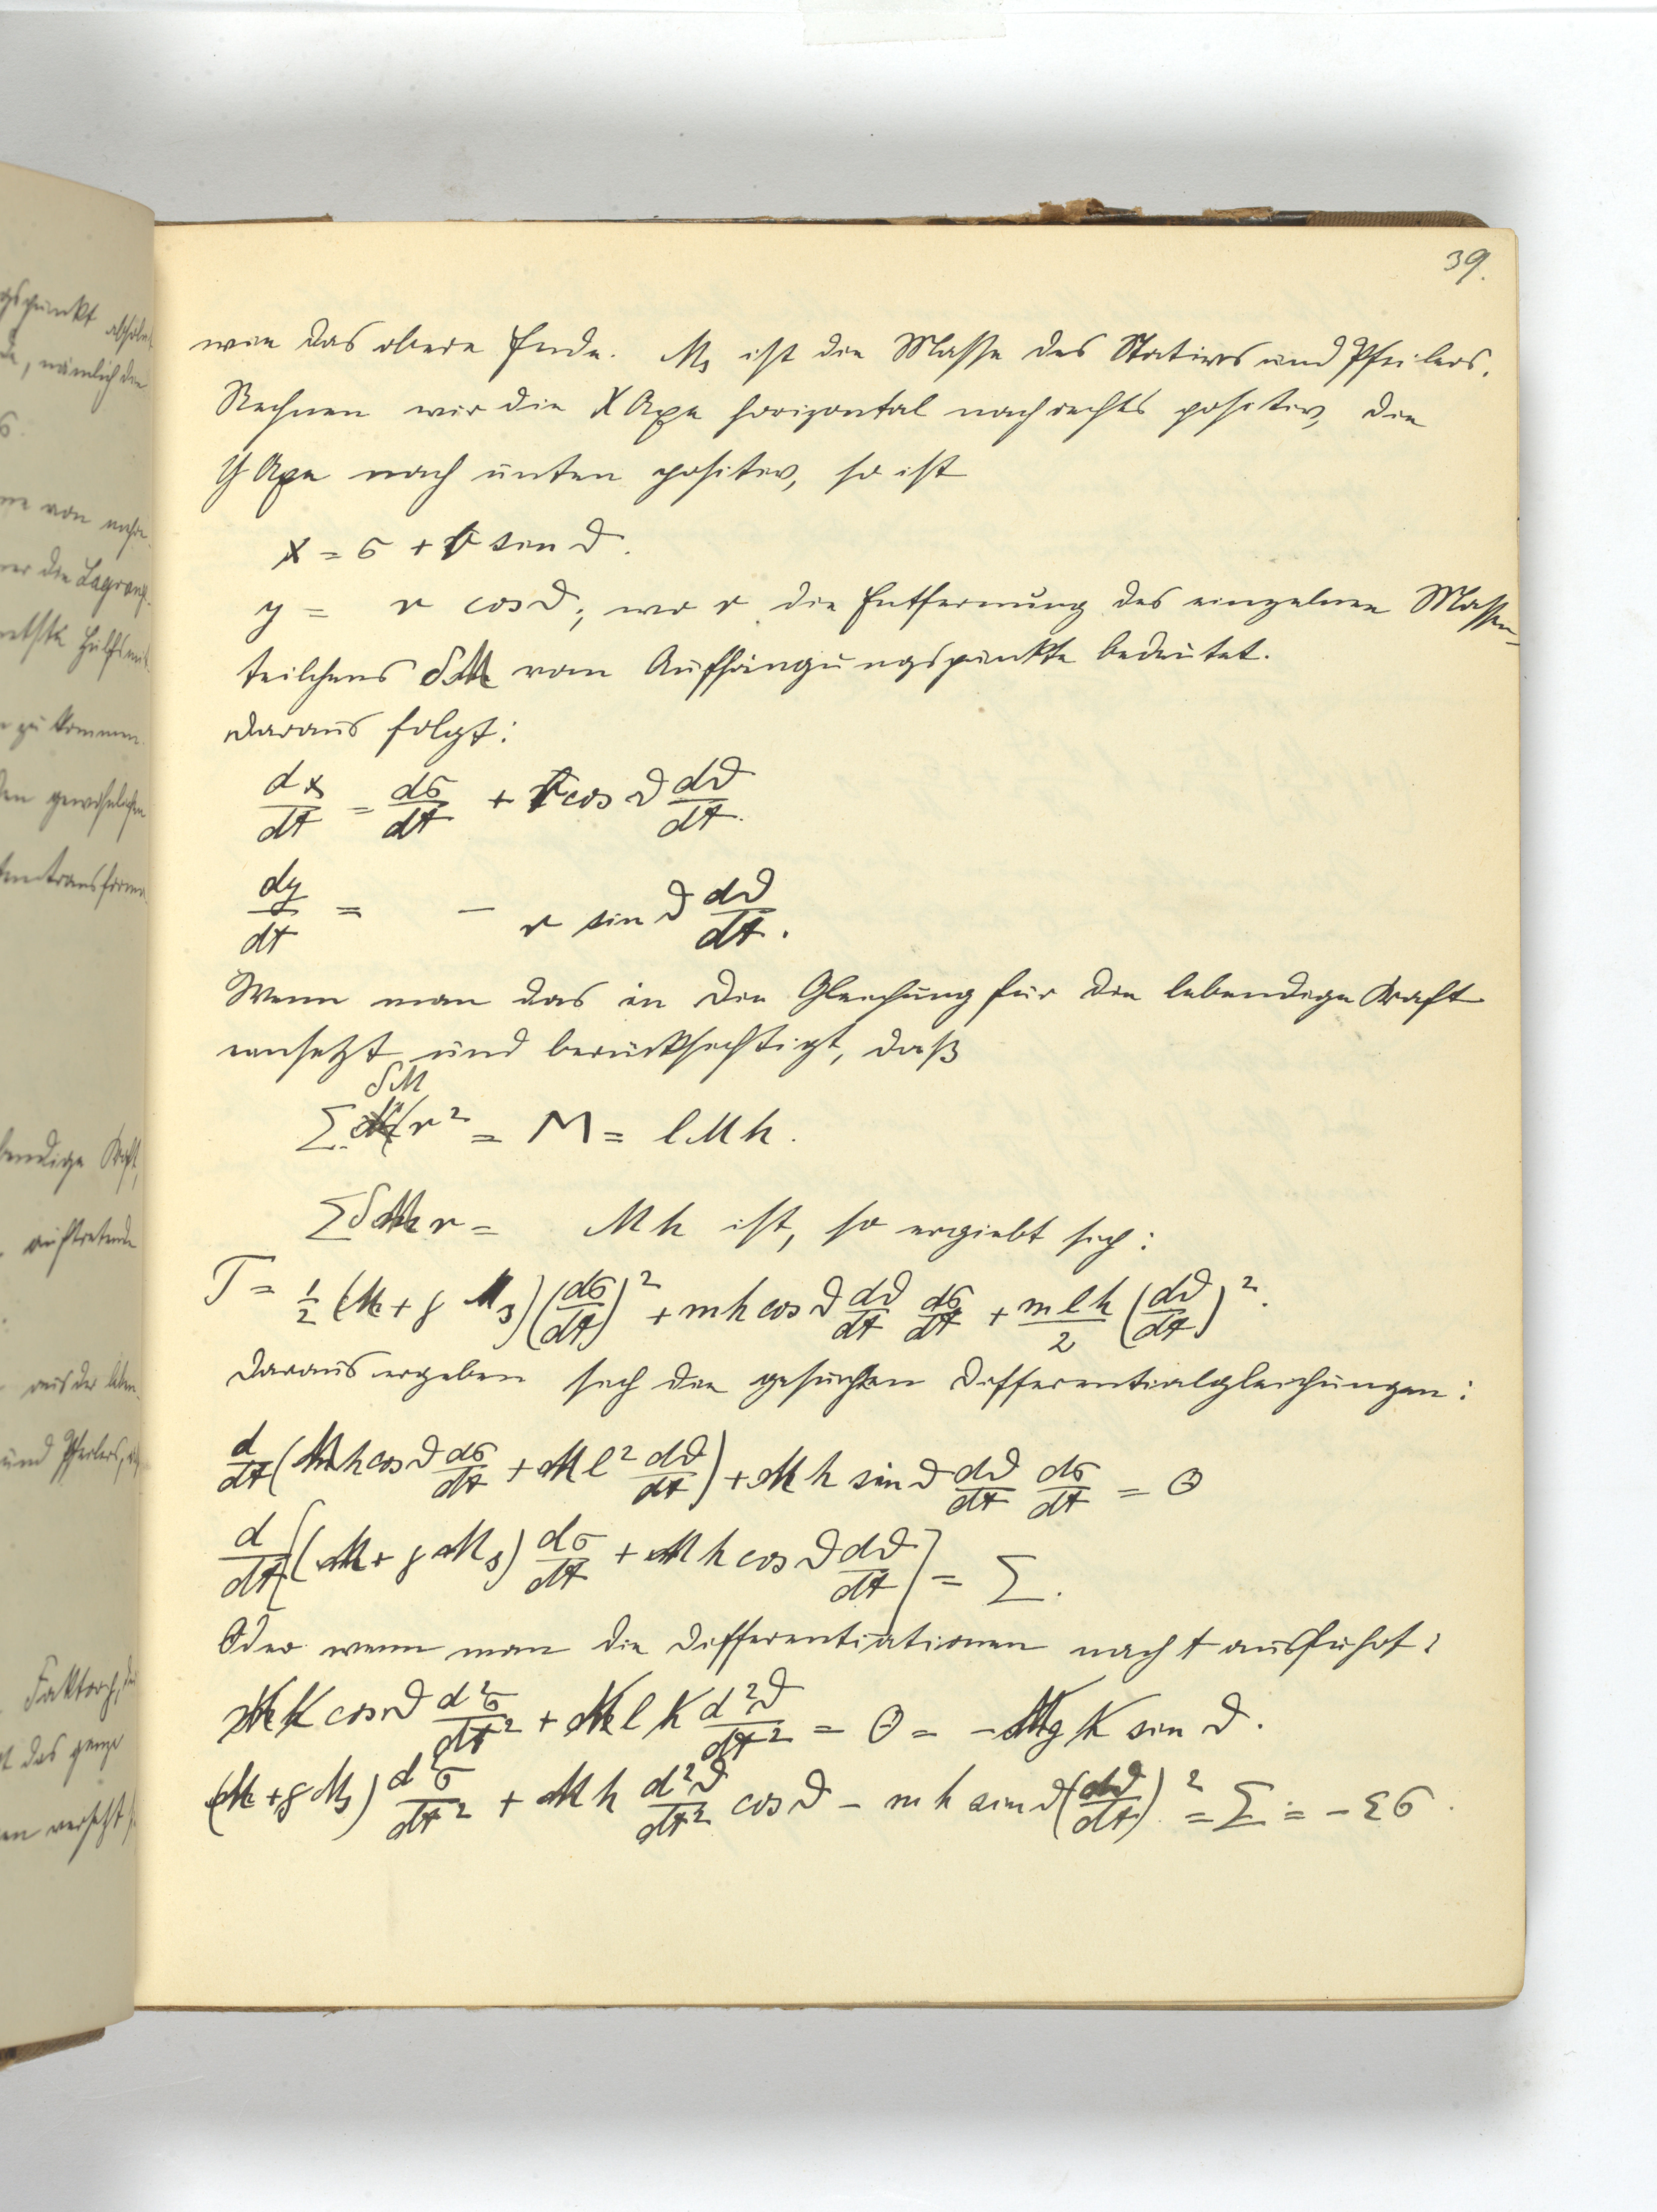 39.
wie das obere Ende. M₃ ist die Masse des Stativs und Pfeilers.
Rechnen wir die X Axe horizontal nach rechts positiv, die
Y Axe nach unten positiv, so ist
x = σ + r sin ϑ.
y = r cos ϑ; wo r die Entfernung des einzelnen Massen-
teilchens δM vom Aufhängungspunkte bedeutet.
Daraus folgt:
dx/dt = dσ/dt + r cos ϑ dϑ/dt.
dy/dt = − r sin ϑ dϑ/dt.
Wenn man das in die Gleichung für die lebendige Kraft
einsetzt und berücksichtigt, daß
Σ δM r² = M = l M h.
Σ δM r = M h ist, so ergiebt sich:
T = 1/2 (M + γ M₃)(dσ/dt)² + m h cos ϑ dϑ/dt dσ/dt + m l h/2 (dϑ/dt)².
Daraus ergeben sich die gesuchten Differentialgleichungen:
d/dt (M h cos ϑ dσ/dt + M l² dϑ/dt) + M h sin ϑ dϑ/dt dσ/dt = Θ
d/dt [(M + γ M₃) dσ/dt + M h cos ϑ dϑ/dt] = Σ.
Oder wenn man die Differentiationen nach t ausführt:
M h cos ϑ d²σ/dt² + M l h d²ϑ/dt² = Θ = − M g h sin ϑ.
(M + γ M₃) d²σ/dt² + M h d²ϑ/dt² cos ϑ − m h sin ϑ (dϑ/dt)² = Σ = − Ɛσ.